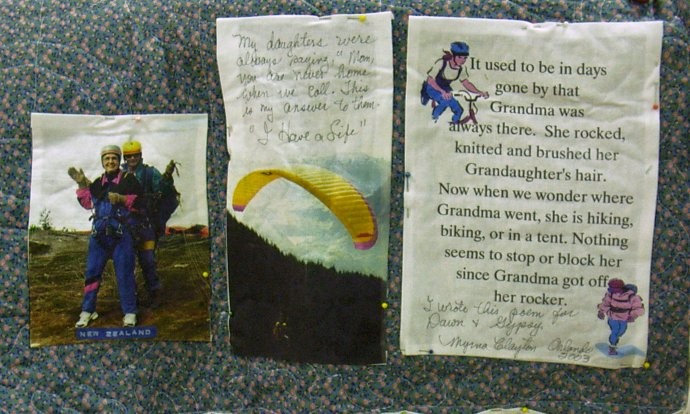 NEW ZEALAND
My daughters were
always saying, "Mom,
you are never home
when we call. This
is my answer to them.
"I Have a Life"
It used to be in days
gone by that
Grandma was
always there. She rocked,
knitted and brushed her
Grandaughter's hair.
Now when we wonder where
Grandma went, she is hiking,
biking, or in a tent. Nothing
seems to stop or block her
since Grandma got off
her rocker.
I wrote this poem for
Dawn & Gypsy.
Myrna Clayton
2003